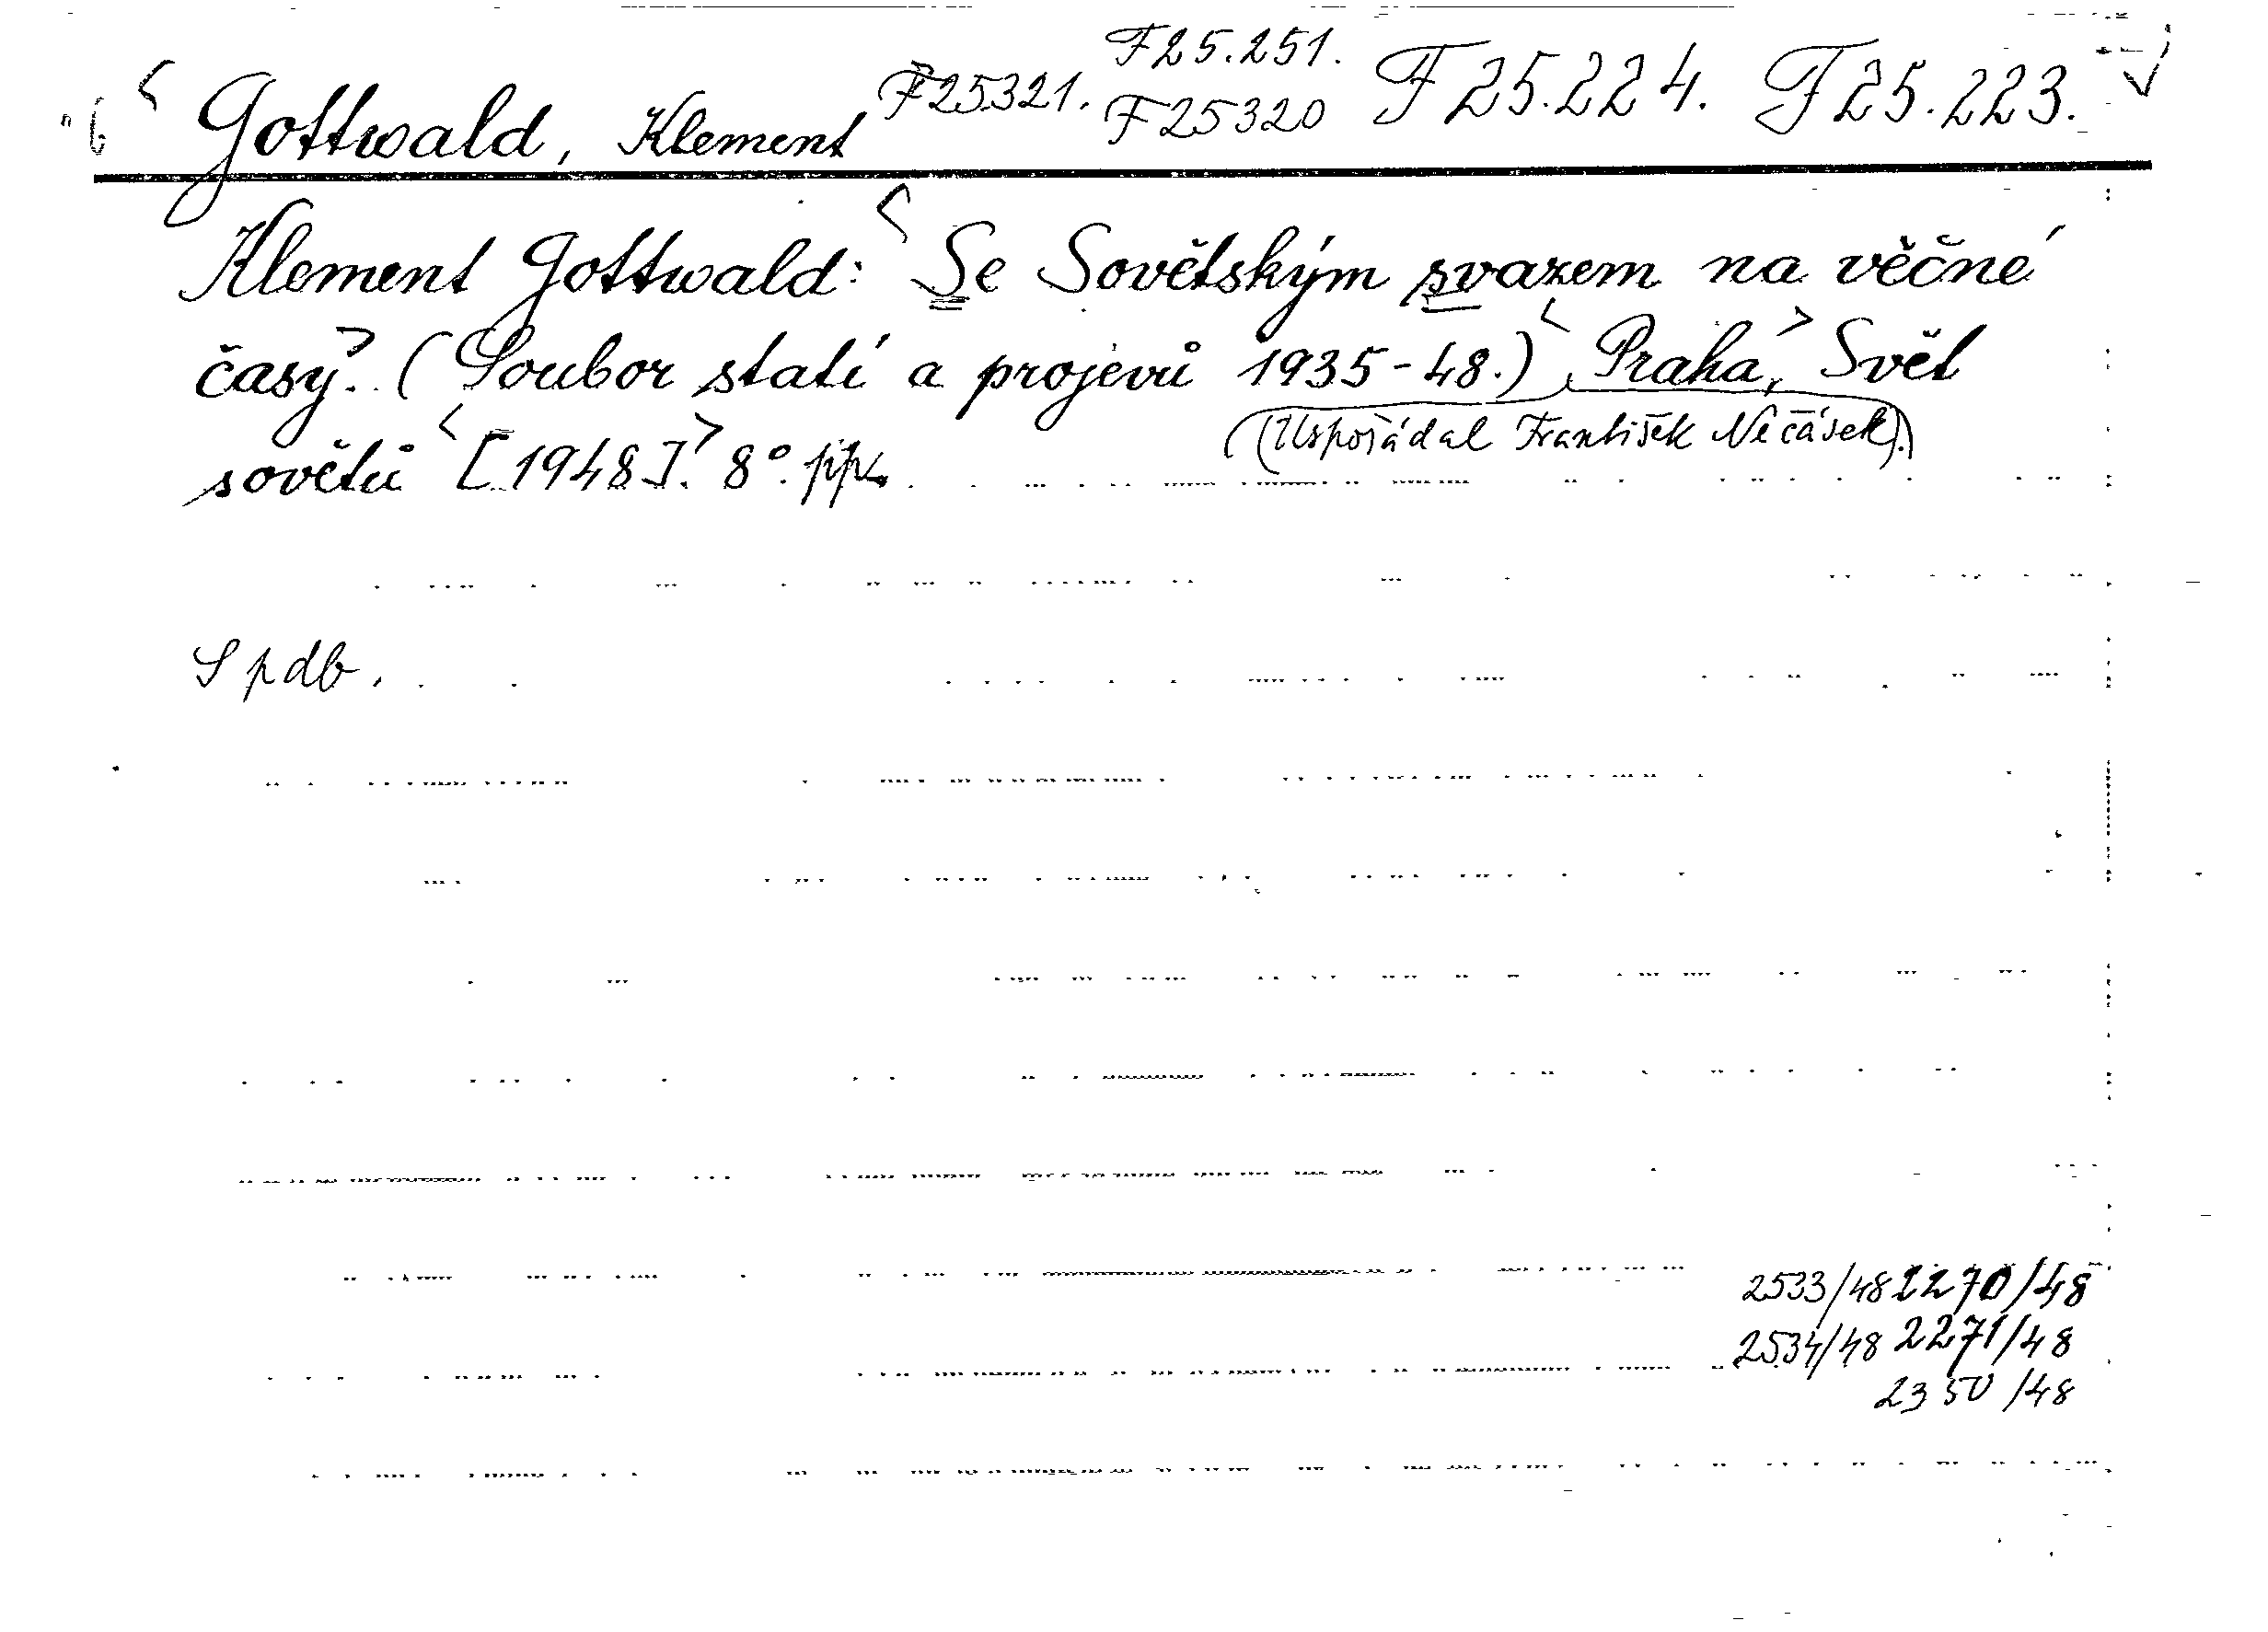 F25.251.
Gottwald, Klement F25321. F25320 F25.224. F25.223.
Klement Gottwald: Se Sovětským svazem na věčné
časy. (Soubor statí a projevů 1935-48.) Praha, Svět
(Uspořádal František Nečásek).
sovětů [1948]. 8°.
S pdb.
2533/48 2270/48
2534/48 2271/48
2350/48